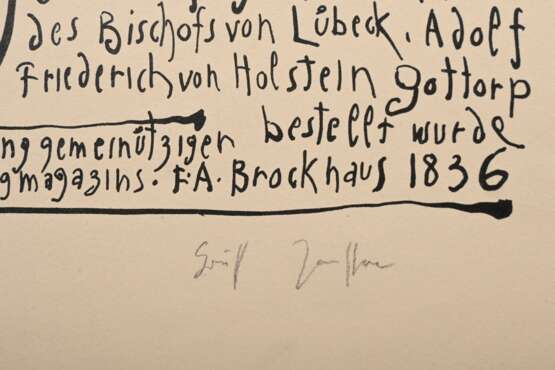 des Bischofs von Lübeck. Adolf
Friederich von Holstein gottorp
bestellt wurde
ng gemeinütziger
gmagazins. F.A. Brockhaus 1836